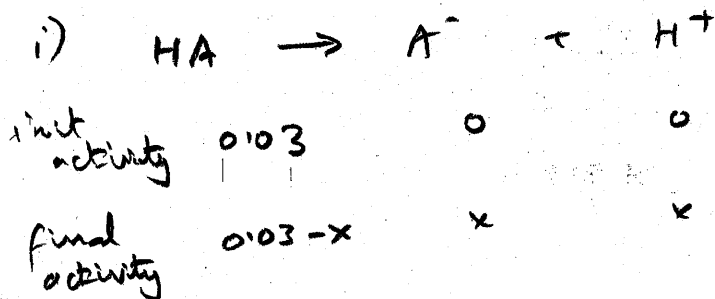 i) HA → A⁻ + H⁺
init activity 0.03 0 0
final activity 0.03-x x x